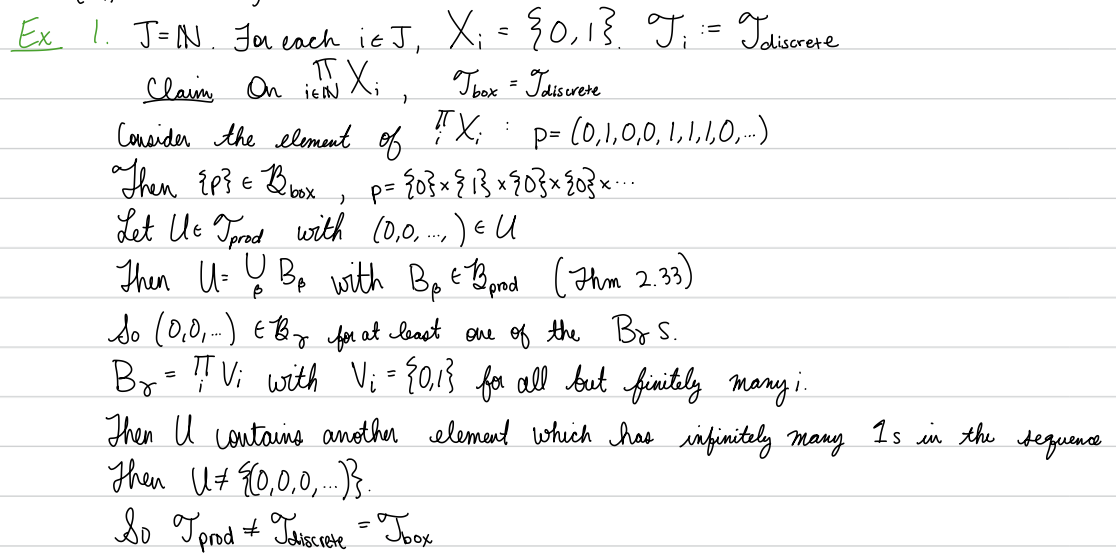 Ex 1. J=ℕ. For each i∈J, X_i = {0,1}. 𝒯_i := 𝒯_discrete
Claim On ∏_{i∈ℕ} X_i, 𝒯_box = 𝒯_discrete
Consider the element of ∏_i X_i : p= (0,1,0,0,1,1,1,0,...)
Then {p} ∈ ℬ_box, p= {0}×{1}×{0}×{0}×⋯
Let U∈ 𝒯_prod with (0,0, ..., ) ∈ U
Then U= ⋃_β B_β with B_β ∈ ℬ_prod (Thm 2.33)
So (0,0,...) ∈ ℬ_γ for at least one of the B_γ s.
B_γ = ∏_i V_i with V_i = {0,1} for all but finitely many i.
Then U contains another element which has infinitely many 1s in the sequence
Then U ≠ {(0,0,0,...)}.
So 𝒯_prod ≠ 𝒯_discrete = 𝒯_box